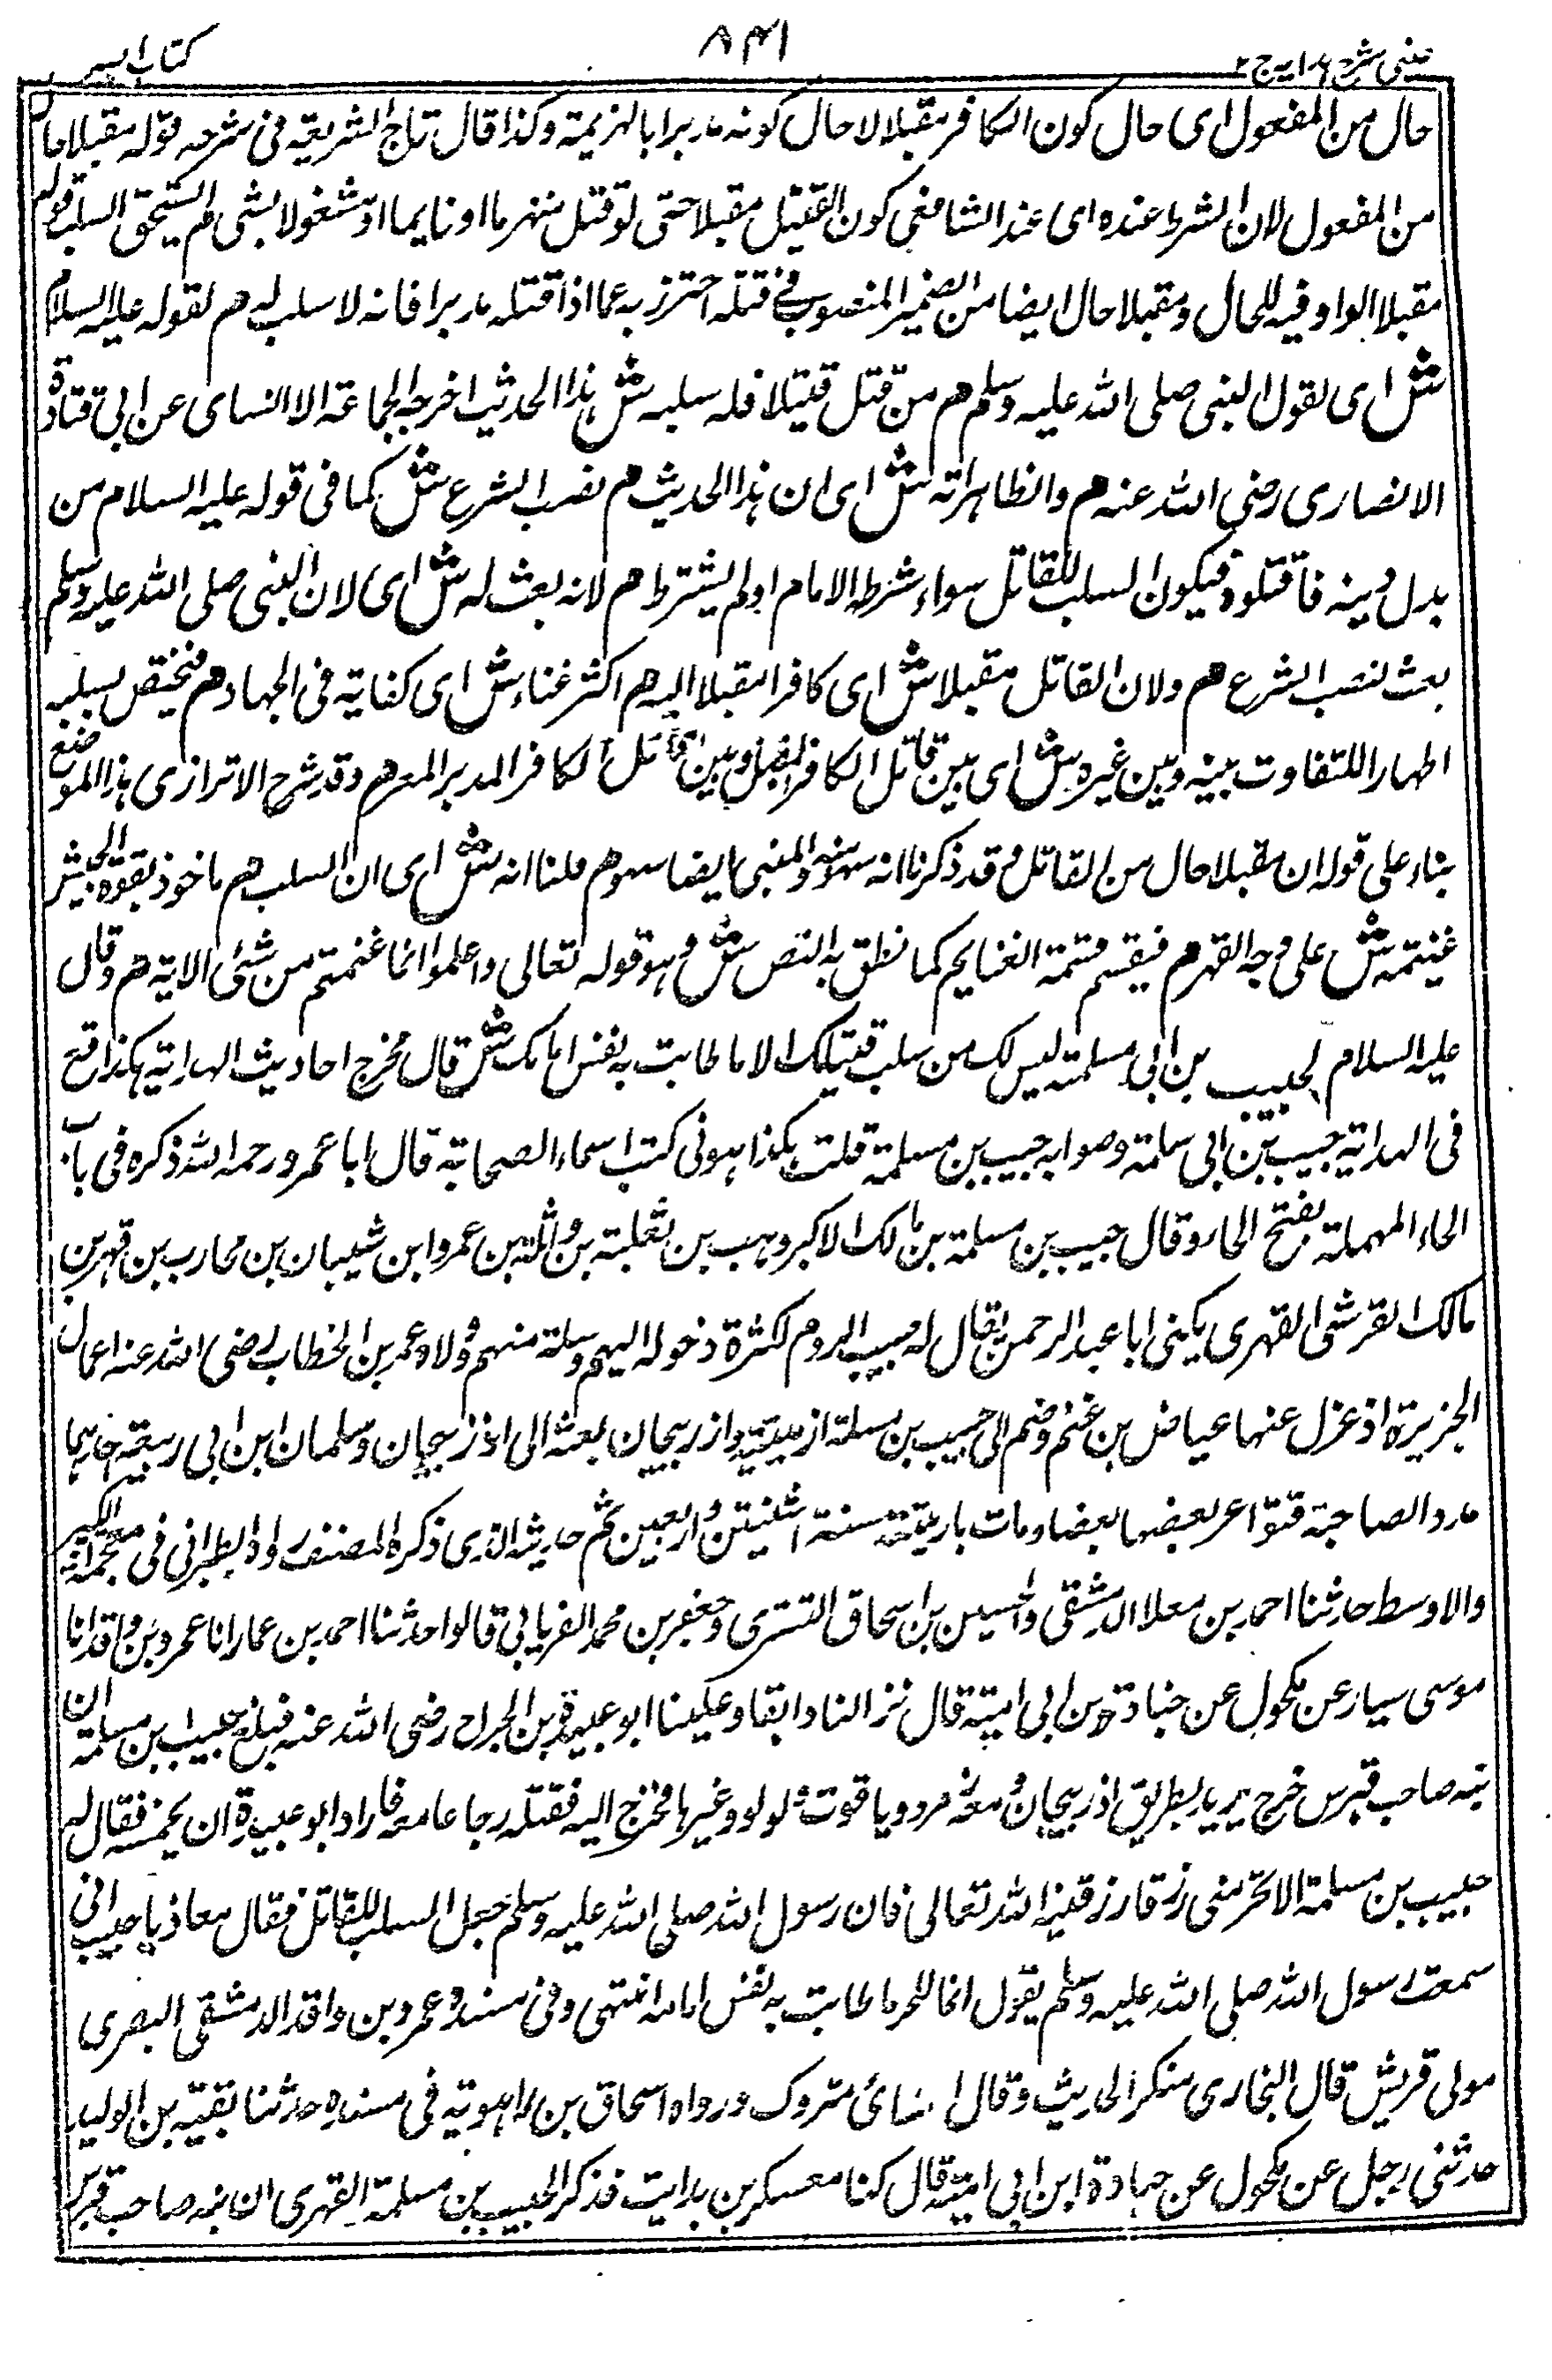 عینی شرح ہدایہ ج ۲
۸۴۱
کتاب السیر
حال من المفعول ای حال کون الکافر مقبلا لا حال کونہ مدبرا بالہزیمۃ وکذا قال تاج الشریعۃ فی شرحہ قولہ مقبلا حال
من المفعول لان الشرط عندہ ای عند الشافعی کون القتیل مقبلا حتی لو قتل منہزما او نایما او مشغولا بشی لم یستحق السلب قولہ
مقبلا الواو فیہ للحال ومقبلا حال ایضا من الضمیر المنصوب فی قتلہ احترز بہ عما اذا قتلہ مدبرا فانہ لا سلب لہ م لقولہ علیہ السلام
ش ای لقول النبی صلی اللہ علیہ وسلم م من قتل قتیلا فلہ سلبہ ش ہذا الحدیث اخرجہ الجماعۃ الا النسای عن ابی قتادۃ
الانصاری رضی اللہ عنہ م والظاہر انہ ش ای ان ہذا الحدیث م نصب الشرع ش کما فی قولہ علیہ السلام من
بدل دینہ فاقتلوہ فیکون السلب للقاتل سواء شرطہ الامام اولم یشترط م لانہ بعث لہ ش ای لان النبی صلی اللہ علیہ وسلم
بعث لنصب الشرع م ولان القاتل مقبلا ش ای کافرا مقبلا الیہ م اکثر غناء ش ای کفایۃ فی الجہاد م فیختص بسلبہ
اظہارا للتفاوت بینہ وبین غیرہ ش ای بین قاتل الکافر المقبل وبین قاتل الکافر المدبر المنہزم وقد شرح الاترازی ہذا الموضع
بناء علی قولہ ان مقبلا حال من القاتل وقد ذکرنا انہ سہو منہ والمبنی ایضا سہو م ولنا انہ ش ای ان السلب م ماخوذ بقوۃ الجیش
غنیتمہ ش علی وجہ القہر م فیقسم قسمۃ الغنایم کما نطق بہ النص ش وہو قولہ تعالی واعلموا انما غنمتم من شئ الایۃ م وقال
علیہ السلام لحبیب بن ابی مسلمۃ لیس لک من سلب قتیلک الا ما طابت بہ نفس امامک ش قال مخرج احادیث الہدایۃ ہکذا وقع
فی الہدایۃ حبیب بن ابی سلمۃ وصوابہ حبیب بن مسلمۃ قلت ہکذا ہو فی کتب اسماء الصحابۃ قال ابا عمر ورحمہ اللہ ذکرہ فی باب
الحاء المہملۃ بفتح الحا وقال حبیب بن مسلمۃ بن مالک الاکبر وہب بن ثعلبۃ بن واثلۃ بن عمرو ابن شیبان بن محارب بن فہر بن
مالک القرشی الفہری یکنی ابا عبد الرحمن یقال لہ حبیب الروم لکثرۃ دخولہ الیہم وسلۃ منہم وولاہ عمر بن الخطاب رضی اللہ عنہ اعمال
الجزیرۃ اذ عزل عنہا عیاض بن غنم وضم الی حبیب بن مسلمۃ ارمینیۃ واذربیجان بعثہ الی اذربیجان وسلمان ابن ابی ربیعۃ احدہما
مدد الصاحبۃ بعضہا بعضا ومات بارمینیۃ سنۃ اثنیتن واربعین ثم حدیثہ الذی ذکرہ المصنف رواہ الطبرانی فی معجمہ الکبیر
والاوسط حدثنا احمد بن معلا الدمشقی والحسین بن اسحاق التستری وجعفر بن محمد الفریابی قالوا حدثنا احمد بن عمار انا عمرو بن واقد انا
موسی سیار عن مکحول عن جنادۃ بن ابی امیۃ قال نزلنا دابقا وعلینا ابو عبیدۃ بن الجراح رضی اللہ عنہ فبلغ حبیب بن مسلمۃ ان
بنہ صاحب قبرس خرج یرید بطریق اذربیجان ومعہ زمرد ویاقوت ولولو وغیرہا فخرج الیہ فقتلہ وجا عامعہ فاراد ابو عبیدۃ ان یخمسہ فقال لہ
حبیب بن مسلمۃ لا تحرمنی رزقا رزقنیہ اللہ تعالی فان رسول اللہ صلی اللہ علیہ وسلم جعل السلب للقاتل فقال معاذ یا حبیب انی
سمعت رسول اللہ صلی اللہ علیہ وسلم یقول انما للمرء ما طابت بہ نفس امامہ انتہی وفی سندہ عمرو بن واقد الدمشقی البصری
مولی قریش قال البخاری منکر الحدیث وقال النسائ متروک ورواہ اسحاق بن راہویۃ فی مسندہ حدثنا بقیۃ بن الولید
حدثنی رجل عن مکحول عن جنادۃ ابن ابی امیۃ قال کنا معسکرین بدابت فذکر الحبیب بن مسلمۃ الفہری ان بنہ صاحب قبرس